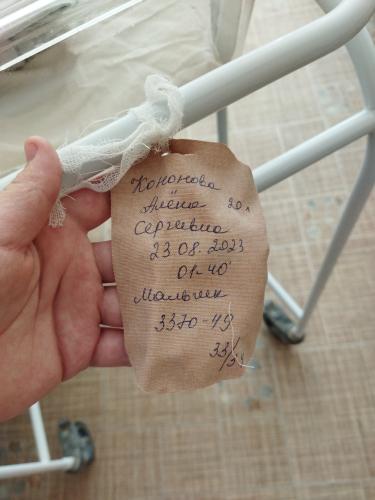 Кононова
Алёна 20 л
Сергеевна
23.08.2023
01-40
Мальчик
3370-49
33/34